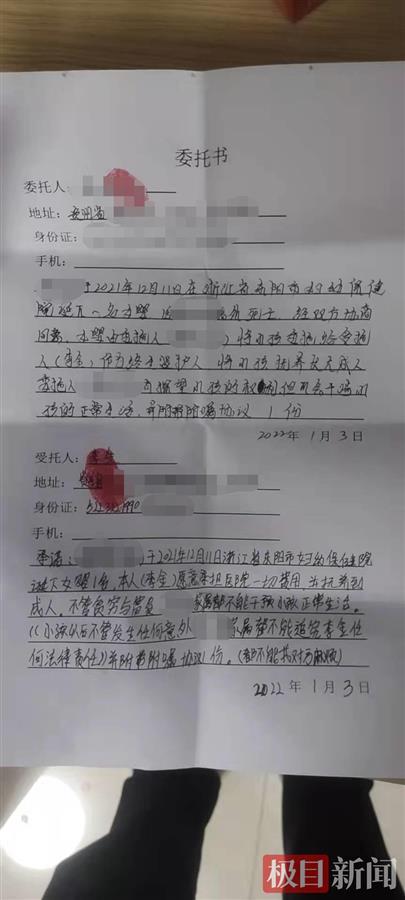 委托书
委托人：
地址：贵州省
身份证：
手机：
于2021年12月11日在浙江省东阳市妇幼保健
院诞下一名女婴 经双方协商
同意，女婴由委托人 将小孩委托给受托
人(李金)作为终生监护人 将小孩抚养长大成人
委托人 有探望小孩的权利但不会干扰小
孩的正常生活，并附有附嘱协议1份
2022年1月3日
受托人：李金
地址：
身份证：
手机：
承诺： 于2021年12月11日浙江省东阳市妇幼保健院
诞下女婴1名，本人(李金)愿意承担医院一切费用，并抚养到
成人。不管贫穷与富贵 家属都不能干预小孩正常生活。
((小孩以后不管发生任何意外 家属都不能追究李金任
何法律责任))并附带附嘱协议1份。(都不能找对方麻烦)
2022年1月3日
极目新闻